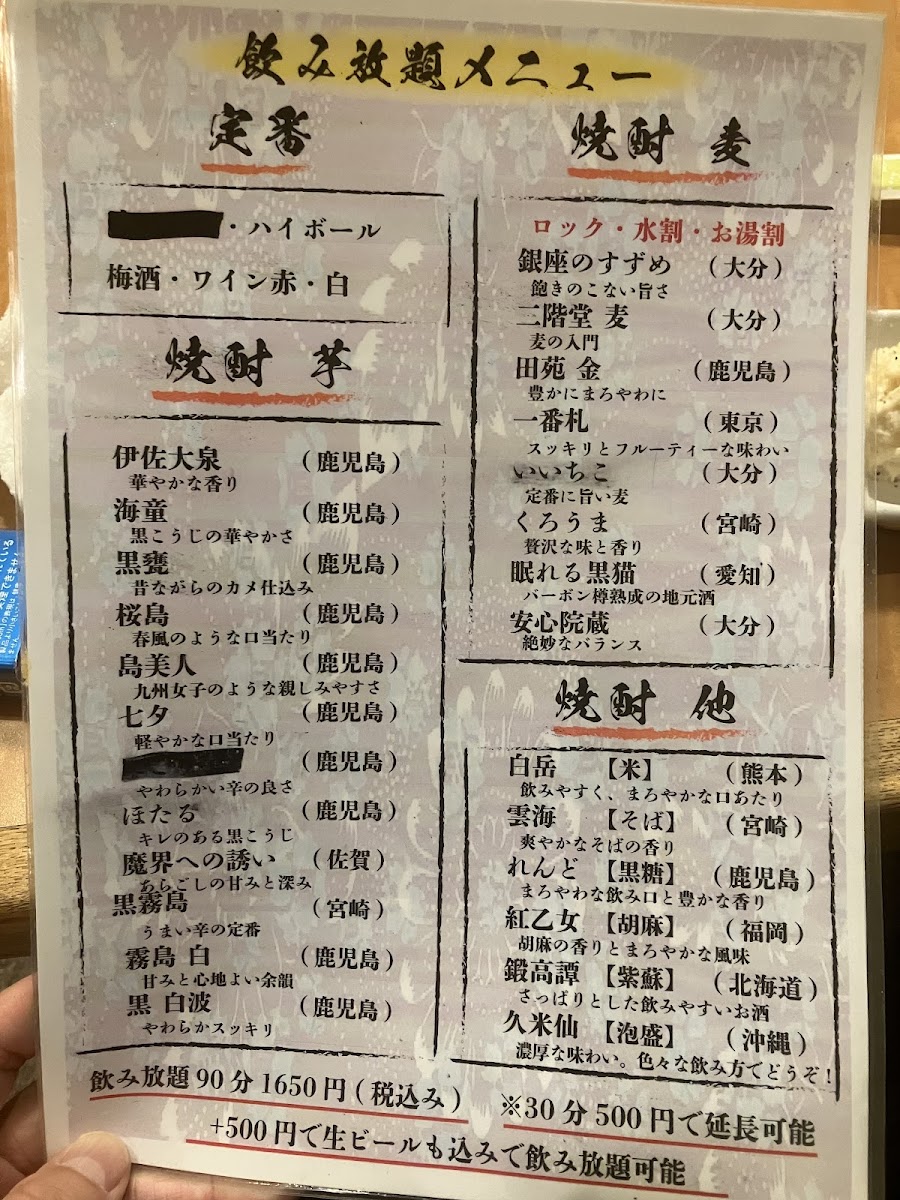 飲み放題メニュー
定番
・ハイボール
梅酒・ワイン赤・白
焼酎 芋
伊佐大泉 (鹿児島)
華やかな香り
海童 (鹿児島)
黒こうじの華やかさ
黒甕 (鹿児島)
昔ながらのカメ仕込み
桜島 (鹿児島)
春風のような口当たり
島美人 (鹿児島)
九州女子のような親しみやすさ
七夕 (鹿児島)
軽やかな口当たり
(鹿児島)
やわらかい辛の良さ
ほたる (鹿児島)
キレのある黒こうじ
魔界への誘い (佐賀)
あらごしの甘みと深み
黒霧島 (宮崎)
うまい辛の定番
霧島 白 (鹿児島)
甘みと心地よい余韻
黒 白波 (鹿児島)
やわらかスッキリ
焼酎 麦
ロック・水割・お湯割
銀座のすずめ (大分)
飽きのこない旨さ
二階堂 麦 (大分)
麦の入門
田苑 金 (鹿児島)
豊かにまろやわに
一番札 (東京)
スッキリとフルーティーな味わい
いいちこ (大分)
定番に旨い麦
くろうま (宮崎)
贅沢な味と香り
眠れる黒猫 (愛知)
バーボン樽熟成の地元酒
安心院蔵 (大分)
絶妙なバランス
焼酎 他
白岳 【米】 (熊本)
飲みやすく、まろやかな口あたり
雲海 【そば】 (宮崎)
爽やかなそばの香り
れんど 【黒糖】 (鹿児島)
まろやわな飲み口と豊かな香り
紅乙女 【胡麻】 (福岡)
胡麻の香りとまろやかな風味
鍛高譚 【紫蘇】 (北海道)
さっぱりとした飲みやすいお酒
久米仙 【泡盛】 (沖縄)
濃厚な味わい。色々な飲み方でどうぞ!
飲み放題90分1650円(税込み)
※30分500円で延長可能
+500円で生ビールも込みで飲み放題可能